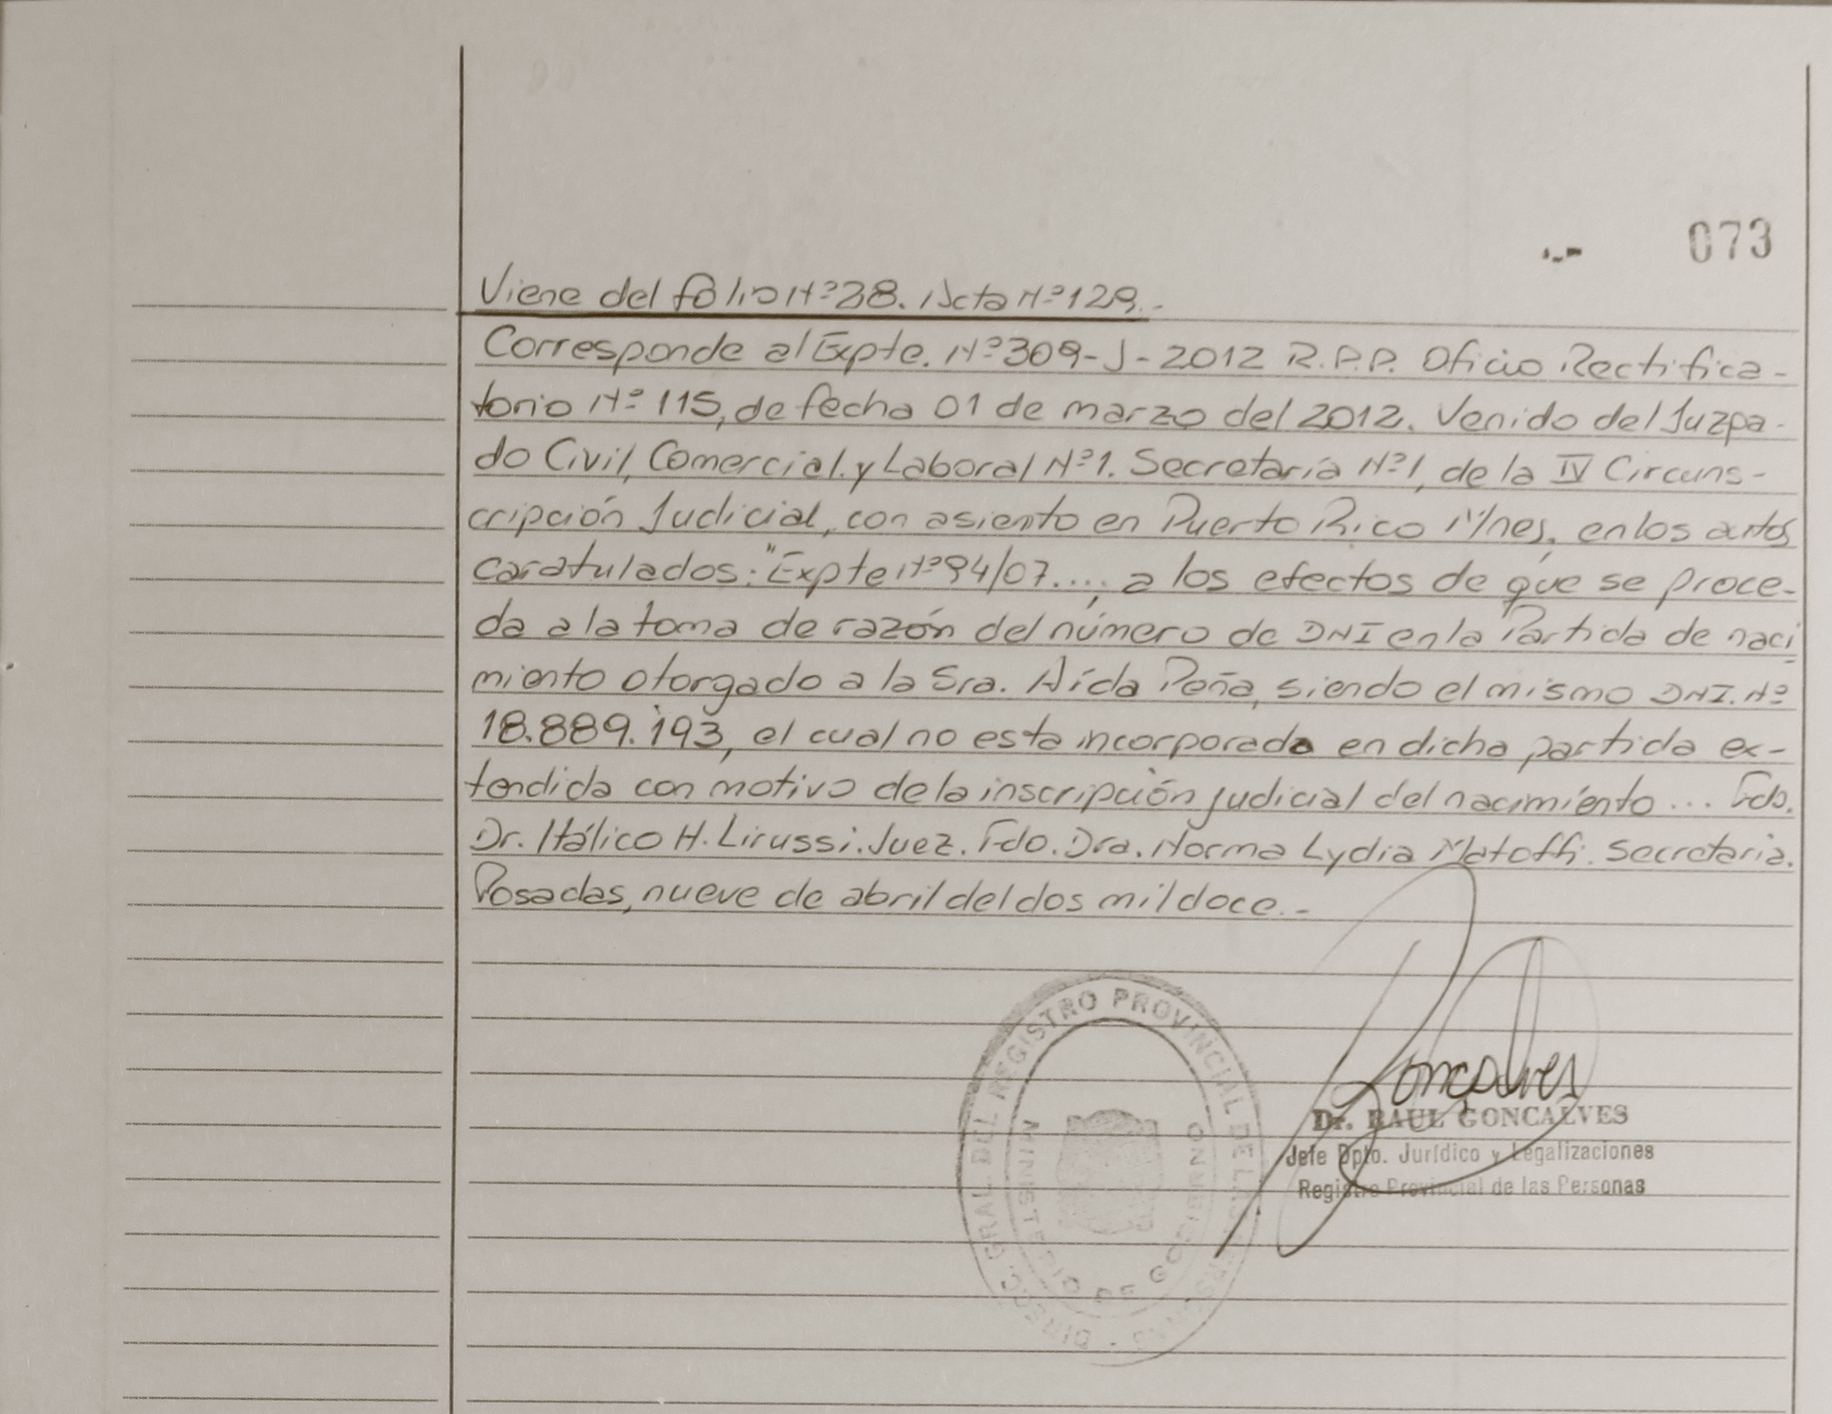 073
Viene del folio Nº 38. Acta Nº 129.-
Corresponde al Expte. Nº 309-J-2012 R.P.P. Oficio Rectifica-
torio Nº 115, de fecha 01 de marzo del 2012. Venido del Juzga-
do Civil, Comercial y Laboral Nº 1. Secretaría Nº 1, de la IV Circuns-
cripción Judicial, con asiento en Puerto Rico Mnes, en los autos
caratulados: "Expte Nº 94/07...., a los efectos de que se proce-
da a la toma de razón del número de DNI en la Partida de naci
miento otorgado a la Sra. Aída Peña, siendo el mismo DNI. Nº
18.889.193, el cual no esta incorporado en dicha partida ex-
tendida con motivo de la inscripción judicial del nacimiento... Fdo.
Dr. Itálico H. Lirussi. Juez. Fdo. Dra. Norma Lydia Matoffi. Secretaria.
Posadas, nueve de abril del dos mil doce.-
DIREC. GRAL. DEL REGISTRO PROVINCIAL DE LAS PERSONAS
MINISTERIO DE GOBIERNO
Goncalves
Dr. RAUL GONCALVES
Jefe Dpto. Jurídico y Legalizaciones
Registro Provincial de las Personas